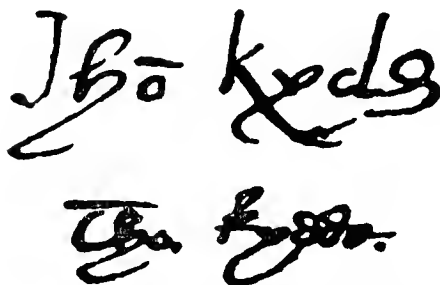 Jhō kyde
Tho. kydde.